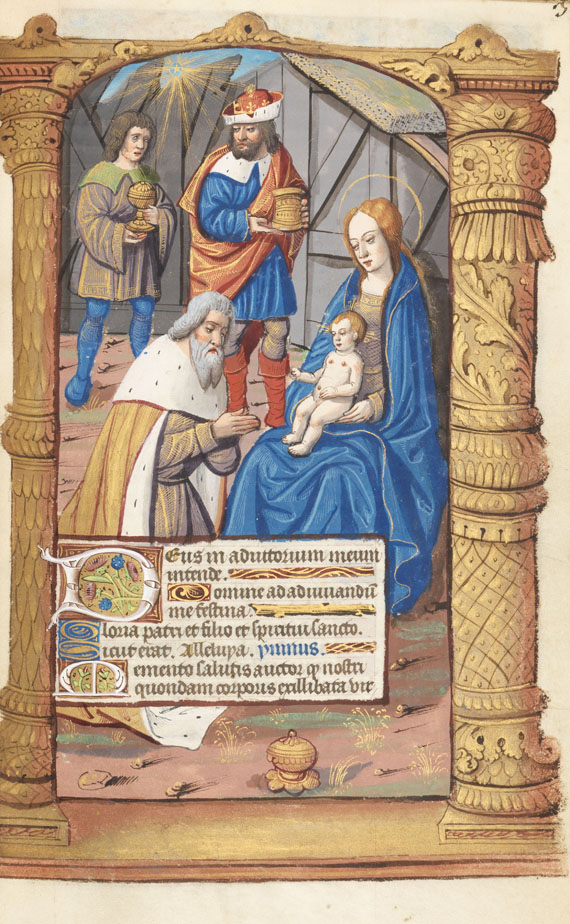 3
Deus in adiutorium meum
intende.
Domine ad adiuuandū
me festina.
Gloria patri et filio et spiritui sancto.
Sicut erat. Alleluya. ymnus.
Memento salutis auctor qͥ nostri
quondam corporis exillibata vir